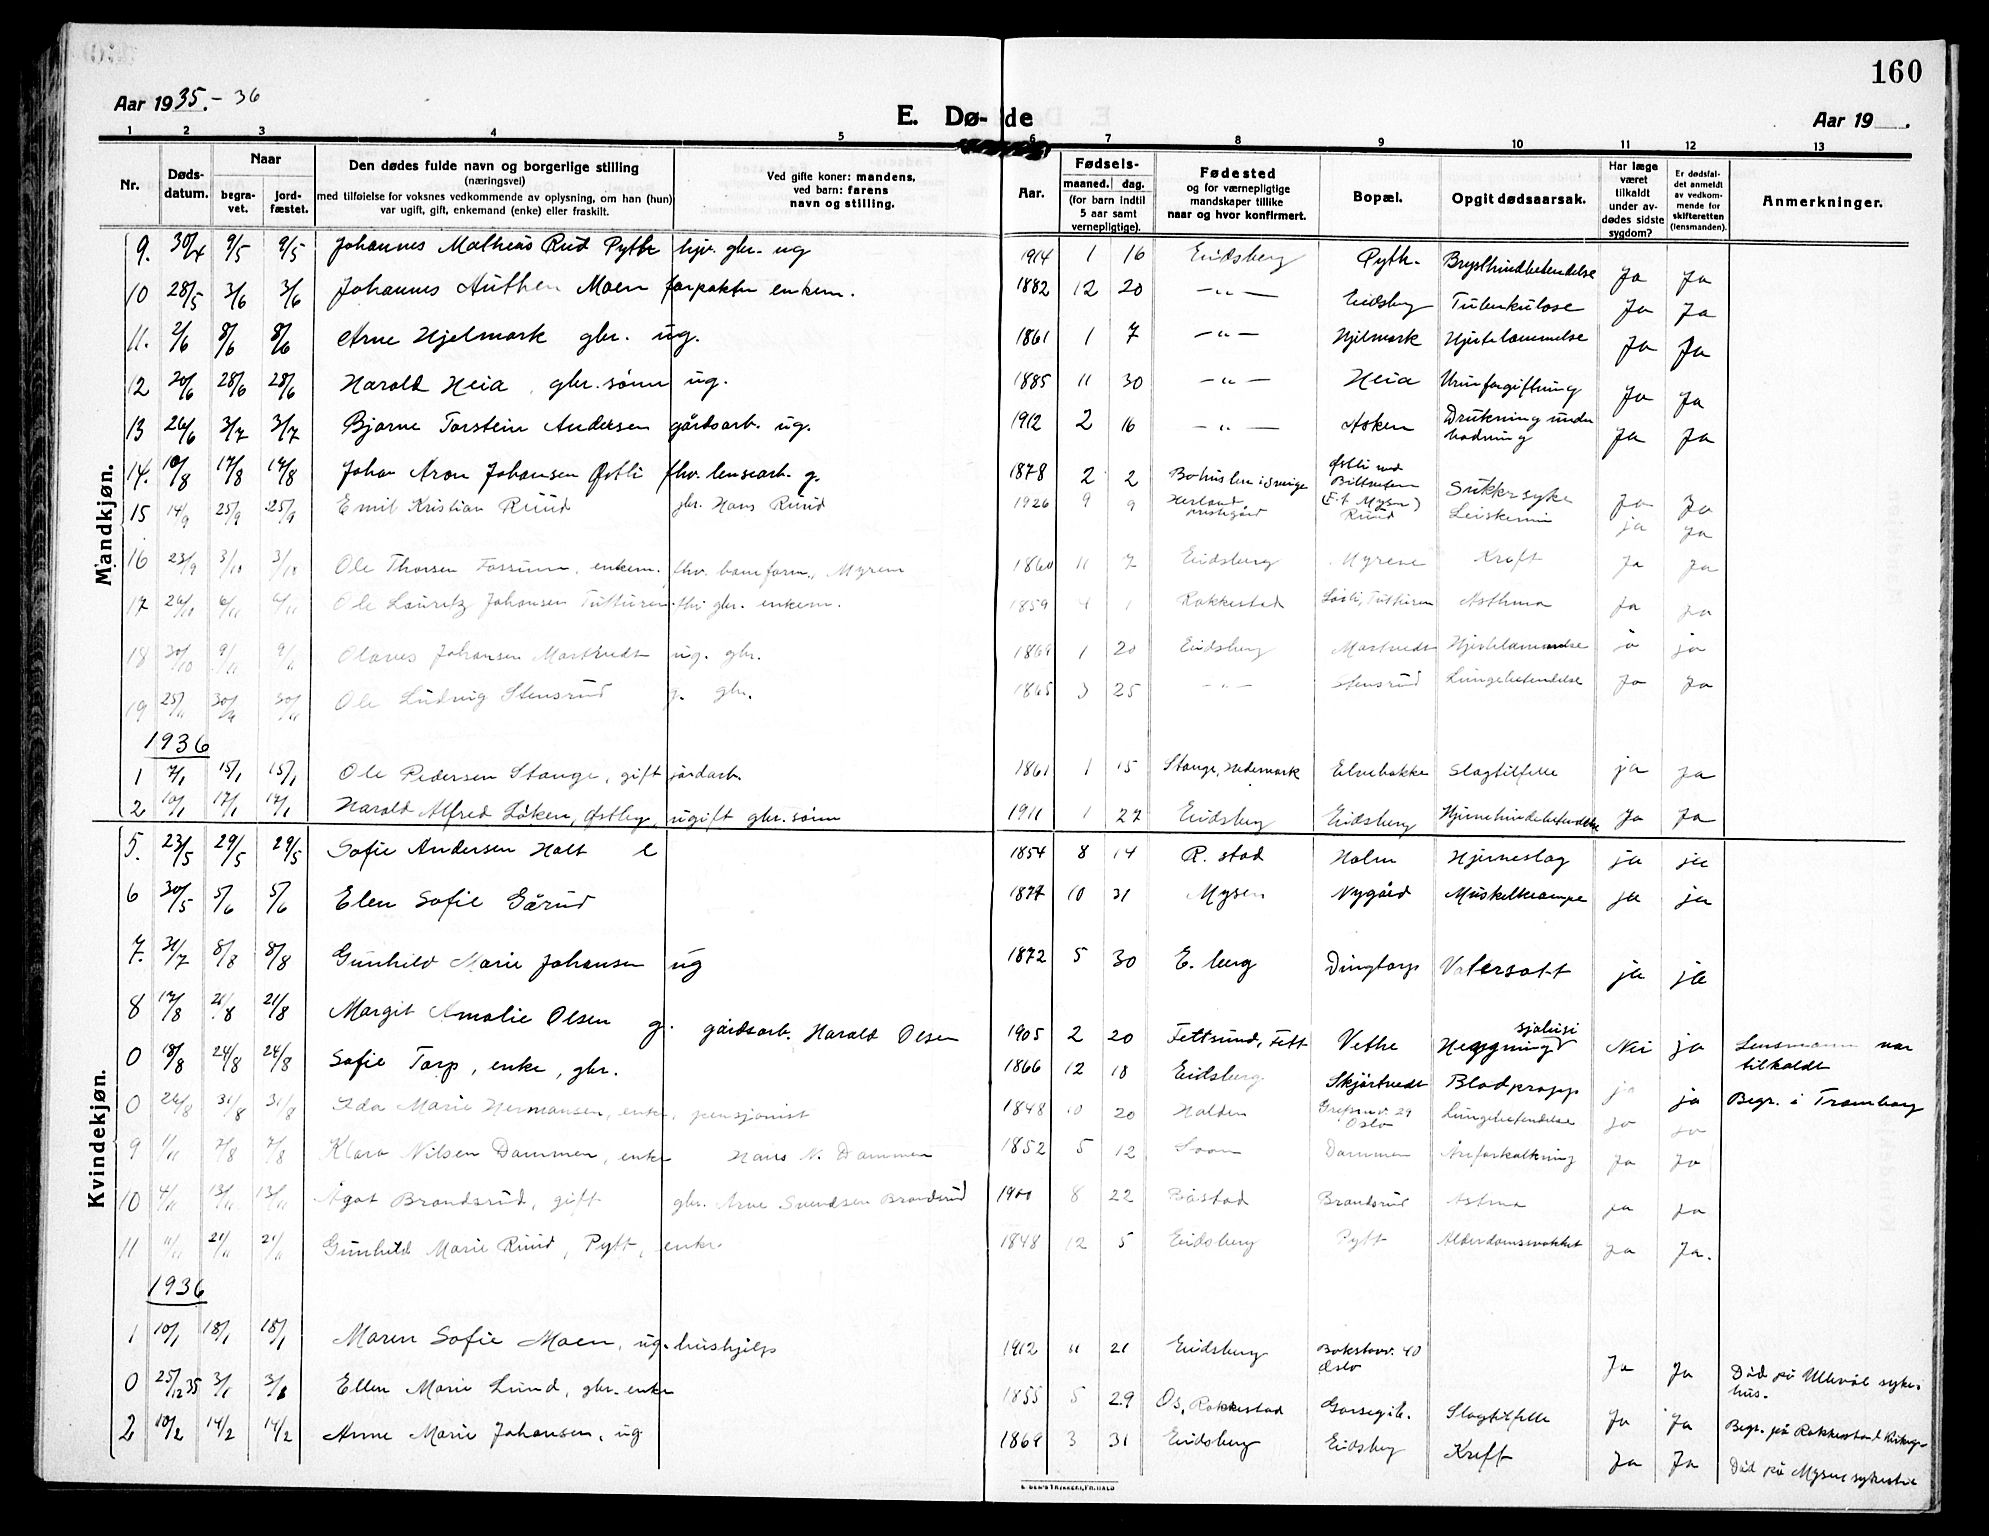 160
Aar 1935.-36
E. Dø- de
Aar 19 .
1 2 3 4 5 6 7 8 9 10 11 12 13
Nr. Døds-datum. Naar begra-vet. jord-fæstet. Den dødes fulde navn og borgerlige stilling (næringsvei) med tilføielse for voksnes vedkommende av oplysning, om han (hun) var ugift, gift, enkemand (enke) eller fraskilt. Ved gifte koner: mandens, ved barn: farens navn og stilling. Aar. Fødsels- maaned. dag. (for barn indtil 5 aar samt vernepligtige). Fødested og for værnepligtige mandskaper tillike naar og hvor konfirmert. Bopæl. Opgit dødsaarsak. Har læge været tilkaldt under av-dødes sidste sygdom? Er dødsfal-det anmeldt av vedkom-mende for skifteretten (lensmanden). Anmerkninger.
Mandkjøn.
9. 30/4 9/5 9/5 Johannes Mathias Rud Pytte hjv. gbr. ug 1914 1 16 Eidsberg Pytt. Brysthindebetendelse Ja Ja
10 28/5 3/6 3/6 Johannes Authen Moen forpakter enkem. 1882 12 20 -"- Eidsberg Tuberkulose Ja Ja
11. 2/6 8/6 8/6 Arne Hjelmark gbr. ug. 1861 1 7 -"- Hjelmark Hjertelammelse Ja Ja
12 20/6 28/6 28/6 Harald Heia, gbr. sønn ug. 1885 11 30 -"- Heia Urinforgiftning Ja Ja
13 26/6 3/7 3/7 Bjarne Torstein Andersen gårdsarb. ug. 1912 2 16 -"- Asken Drukning under badning Ja Ja
14. 10/8 17/8 17/8 Johan Aron Johansen Østli fhv. lensearb. g. 1878 2 2 Bohuslen i Sverige Østli ved (F.f. Mysen) Sukkersyke Ja Ja
15 14/9 25/9 25/9 Emil Kristian Ruud gbr. Hans Ruud 1926 9 9 Herland Ruud Leukemi ja ja
16 23/9 3/10 3/10 Ole Thorsen Fossum, enkem. fhv. baneform., Myrene 1860 11 7 Eidsberg Myrene Kreft Ja Ja
17 26/10 6/11 6/11 Ole Lauritz Johansen Tutturen fhv gbr. enkem. 1859 4 1 Rakkestad Tutturen Asthma Ja Ja
18 30/10 9/11 9/11 Olaves Johansen Mortvedt ug. gbr. 1869 1 20 Eidsberg Mortvedt Hjertelammelse ja ja
19 25/11 30/11 30/11 Ole Ludvig Stensrud g. gbr. 1865 3 25 -"- Stensrud Lungebetendelse Ja Ja
1936
1 7/1 15/1 15/1 Ole Pedersen Stange, gift jordarb. 1861 1 15 Stange, Hedemark Elvebakke Slagtilfelle ja ja
2 10/1 17/1 17/1 Harald Alfred Løken, Østby, ugift gbr. sønn 1911 1 27 Eidsberg Eidsberg Hjernehindebetendelse Ja Ja
Kvindekjøn.
5. 23/5 29/5 29/5 Sofie Andersen Holt e 1854 8 14 R. stad Holm Hjerneslag ja ja
6 30/5 5/6 5/6 Elen Sofie Gårud 1877 10 31 Mysen Nygård Muskelkrampe ja ja
7. 31/7 8/8 8/8 Gunhild Marie Johansen ug 1872 5 30 E. berg Dingtorp Vatersott ja ja
8 17/8 21/8 21/8 Margit Amalie Olsen g. gårdsarb. Harald Olsen 1905 2 20 Fettsund, Fett Vethe Hengning Nei ja Lensmann var tilkaldt
0 18/8 24/8 24/8 Sofie Torp, enke, gbr. 1866 12 18 Eidsberg Skjørtvedt Blodpropp ja ja Begr. i Tromborg
0 26/8 31/8 31/8 Ida Marie Hermansen, enke, pensjonist 1848 10 20 Halden Grefsenv. 29 Oslo Lungebetendelse ja ja
9 1/11 7/8 7/8 Klara Nilsen Dammen, enke Hans N. Dammen 1852 5 12 Soon Dammen Åreforkalkning Ja Ja
10 4/11 13/11 13/11 Ågot Brandsrud, gift gbr. Arne Svendsen Brandsrud 1900 8 22 Båstad Brandsrud Astma ja ja
11 11/11 21/11 21/11 Gunhild Marie Ruud, Pytt, enke. 1848 12 5 Eidsberg Pytt Alderdomssvakhet ja Ja.
1936
1 10/1 18/1 18/1 Maren Sofie Moen, ug. hushjelp 1912 11 21 Eidsberg Bokstavv. 40 Oslo Ja Ja Død på Ullevål sykehus.
0 25/12 35 3/1 3/1 Ellen Marie Lund, gbr. enke 1855 5 29 Os, Rakkestad Slagtilfelle Ja Ja Begr. på Rakkestad kirkeg.
2 10/2 14/2 14/2 Anne Marie Johansen, ug 1869 3 31 Eidsberg Eidsberg Kreft Ja Ja Død på Mysen